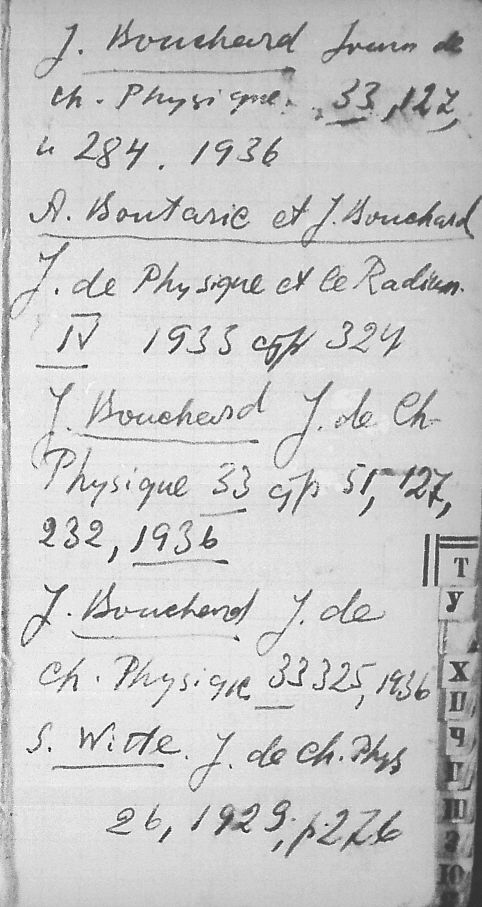 J. Bouchard Journ de
ch. Physique. 33, 127,
и 284. 1936
A. Boutaric et J. Bouchard
J. de Physique et le Radium.
IV 1933 стр 324
J. Bouchard J. de Ch-
Physique 33 стр 51, 127,
232, 1936
J. Bouchard J. de
Ch. Physique 33 325, 1936
S. Witte. J. de ch. Phys
26, 1929, p. 276
Т
У
Х
Ц
Ч
Ш
Э
Ю